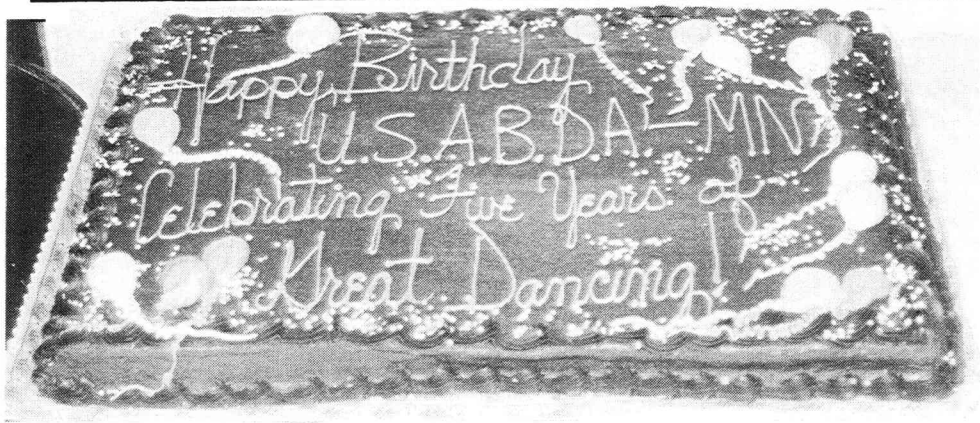 Happy Birthday
U.S.A.B.D.A-MN
Celebrating Five Years of
Great Dancing!